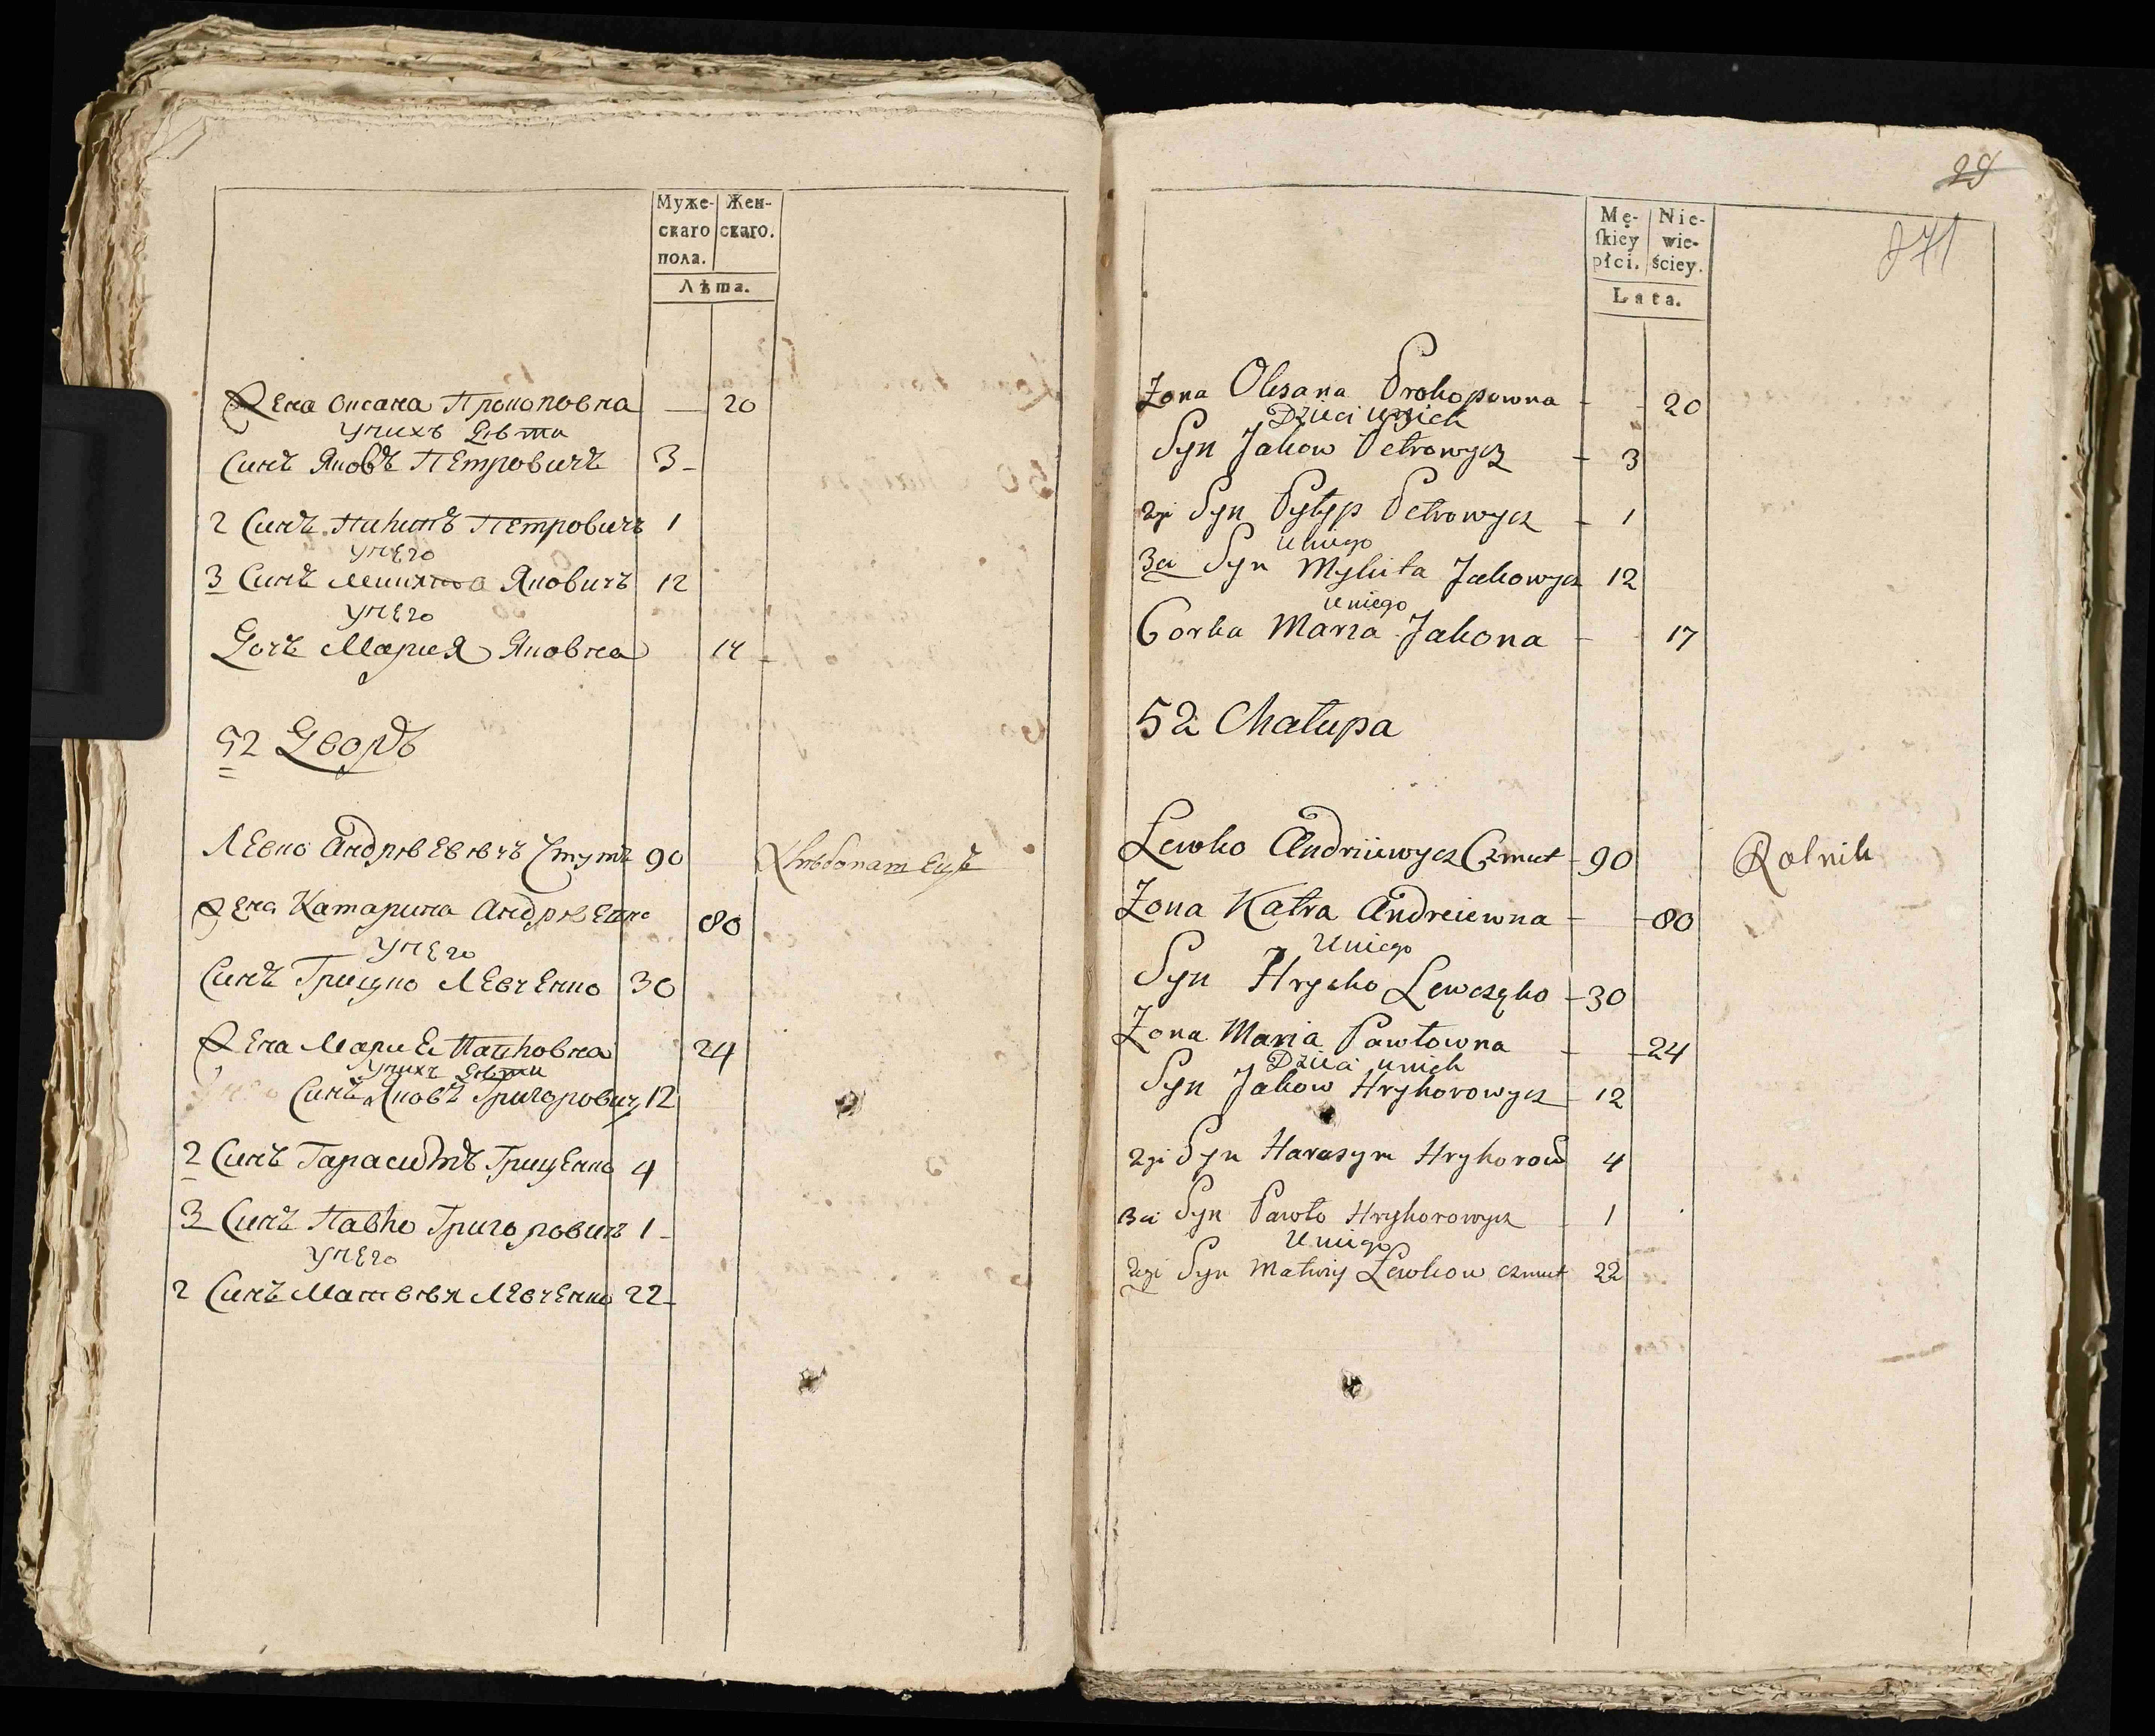 Муже- Жен-
скаго скаго.
пола.
Лѣта.
Жена Оксана Прокоповна — 20
У нихъ дѣти
Синъ Яковъ Петровичъ 3
2 Синъ Пилипъ Петровичъ 1
У него
3 Синъ Микита Яковичъ 12
У него
Дочъ Мария Яковна 17
52 Дворъ
Левко Андрѣевѣчъ Чмутъ 90 Хлѣбопатецъ
Жена Катарина Андрѣевна 80
У него
Синъ Грицко Левченко 30
Жена Марие Павловна 24
У нихъ дѣти
Синъ Яковъ Григоровичъ 12
2 Синъ Гарасимъ Гриценко 4
3 Синъ Павло Григоровичъ 1
У него
2 Синъ Матвѣя Левченко 22
29
871
Mę- Nie-
ſkiey wie-
płci. ściey.
Lata.
Zona Olesana Prokopowna - - 20
Dzieci unich
Syn Jakow Petrowycz - 3
2gi Syn Pyłyp Petrowycz - 1
Uniego
3ci Syn Mykita Jakowycz 12
Uniego
Corka Maria Jakona - - 17
52 Chałupa
Lewko Andriiewycz Czmut - 90 Rolnik
Zona Katra Andreiewna - - 80
Uniego
Syn Hrycko Lewczęko - 30
Zona Maria Pawłowna - - 24
Dzieci unich
Syn Jakow Hryhorowycz - 12
2gi Syn Harasym Hryhorow 4
3ci Syn Pawło Hryhorowycz - 1
Uniego
2gi Syn Matwiy Lewkow czmut 22